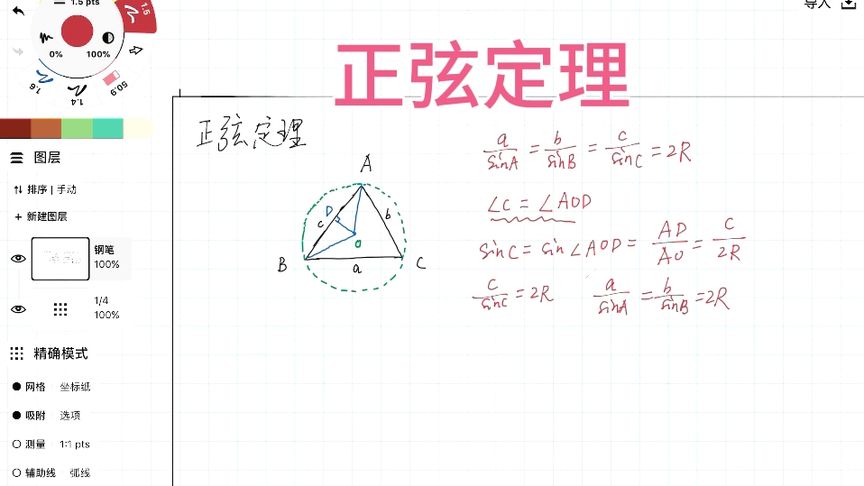 1.5 pts
1.5
导入
0%
100%
1.6
1.4
50.9
正弦定理
图层
排序 | 手动
+ 新建图层
钢笔
100%
1/4
100%
精确模式
网格 坐标纸
吸附 选项
测量 1:1 pts
辅助线 弧线
正弦定理
A
D
c
b
O
B
a
C
a/sinA = b/sinB = c/sinC = 2R
∠C = ∠AOD
sinC = sin∠AOD = AD/AO = c/2R
c/sinC = 2R a/sinA = b/sinB = 2R